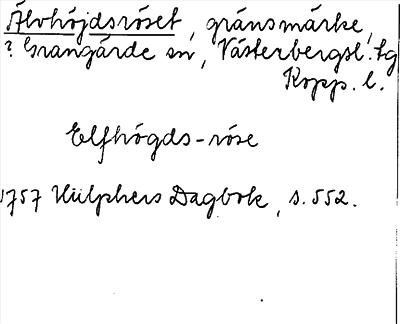 Älvhöjdsröset, gränsmärke,
? Grangärde sn, Västerbergsl. tg
Kopp. l.
Elfhögds-röse
1757 Hülphers Dagbok, s. 552.